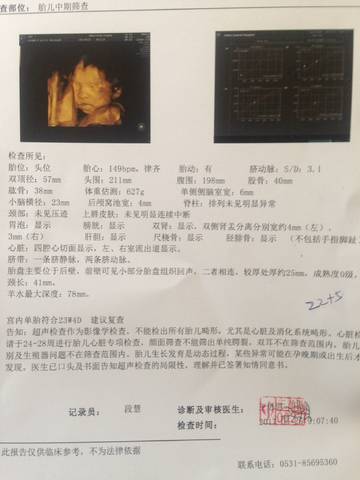 查部位： 胎儿中期筛查
检查所见：
胎位：头位 胎心：149bpm，律齐 胎动：有 脐动脉：S/D：3.1
双顶径：57mm 头围：211mm 腹围：198mm 股骨：40mm
肱骨：38mm 体重估测：627g 单侧侧脑室宽：6mm
小脑横径：23mm 后颅窝池：4mm 脊柱：排列未见明显异常
颈部：未见压迹 上唇皮肤：未见明显连续中断
胃泡：显示 膀胱：显示 双肾：显示，双侧肾盂分离分别宽约4mm（左），
3mm（右） 肝胆：显示 尺桡骨：显示 胫腓骨：显示 （不包括手指脚趾）
心脏：四腔心切面显示，左、右室流出道显示。
脐带：一条脐静脉，两条脐动脉。
胎盘主要位于后壁，前壁可见小部分胎盘组织回声，二者相连，较厚处厚约25mm，成熟度0级。
颈长：41mm。
羊水最大深度：78mm。
22+5
宫内单胎符合23W4D 建议复查
告知：超声检查作为影像学检查，不能检出所有胎儿畸形，尤其是心脏及消化系统畸形。心脏检
请于24-28周进行胎儿心脏专项检查。颜面筛查不能筛出单纯腭裂。双耳不在筛查范围内。胎儿
别及生殖器问题不在筛查范围内。胎儿生长发育是动态过程，某些异常可能在孕晚期或出生后才
发现。医生已口头及书面告知超声检查的局限性，理解并已签署知情同意书。
记录员： 段慧 诊断及审核医生：
检查时间： 9:07:40
此报告仅供临床参考，不为法律依据
联系电话：0531-85695360